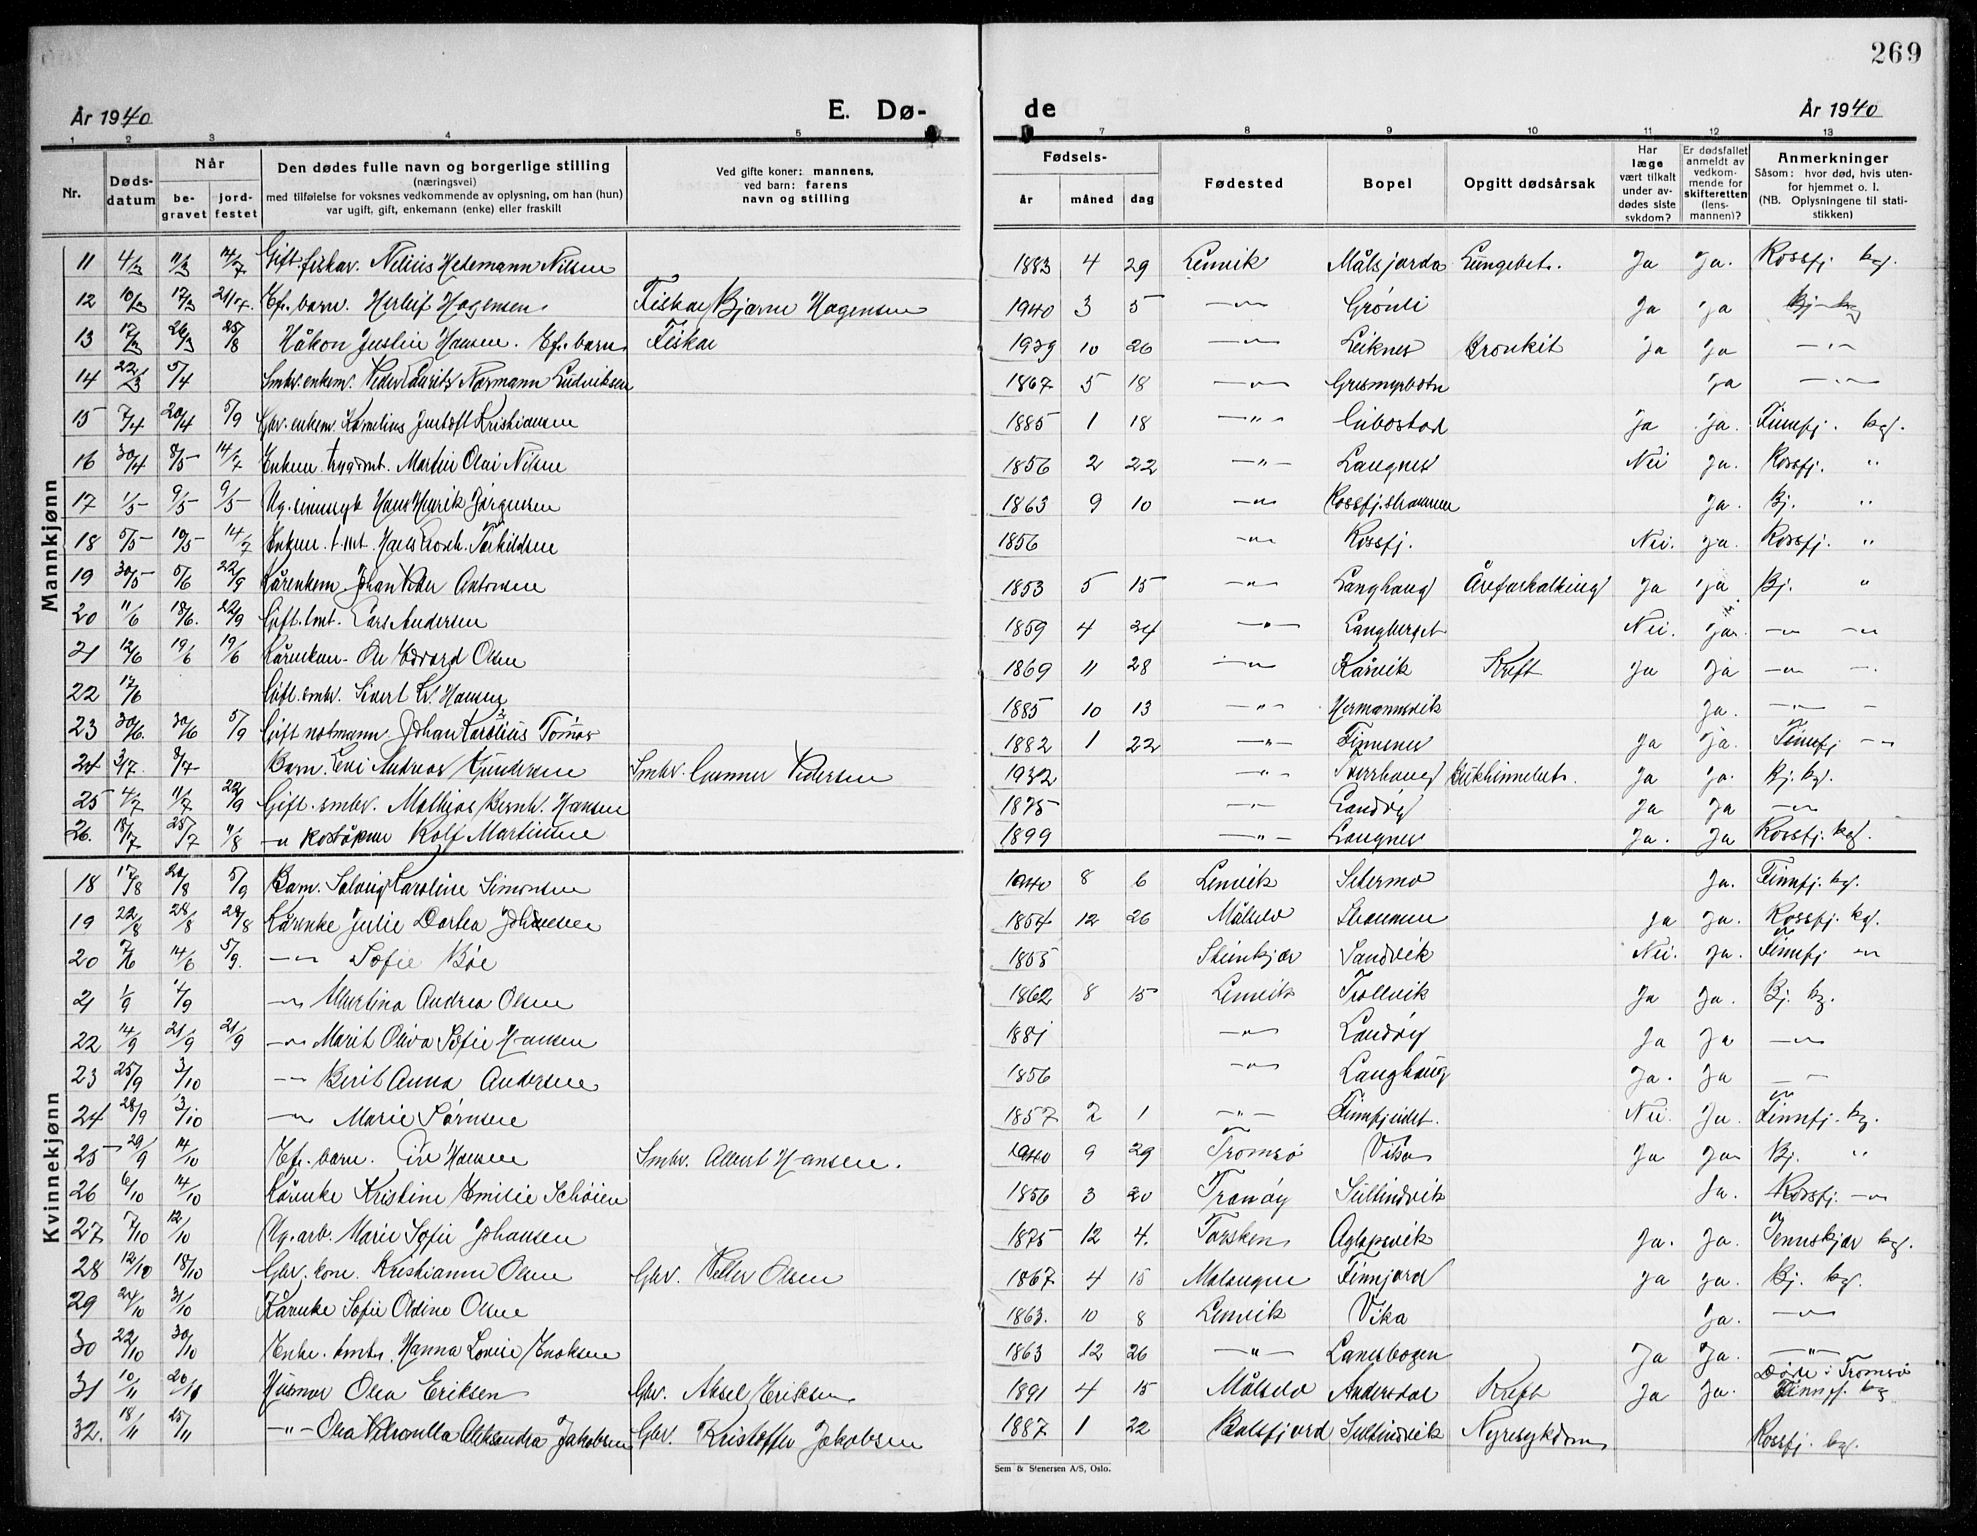 269
År 1940 E. Dø- de År 1940
1 2 3 4 5 7 8 9 10 11 12 13
Nr. Døds-datum Når be-gravet jord-festet Den dødes fulle navn og borgerlige stilling (næringsvei) med tilføielse for voksnes vedkommende av oplysning, om han (hun) var ugift, gift, enkemann (enke) eller fraskilt Ved gifte koner: mannens, ved barn: farens navn og stilling Fødsels- år måned dag Fødested Bopel Opgitt dødsårsak Har læge vært tilkalt under av-dødes siste sykdom? Er dødsfallet anmeldt av vedkom-mende for skifteretten (lens-mannen)? Anmerkninger Såsom: hvor død, hvis uten-for hjemmet o. l. (NB. Oplysningene til stati-stikken)
Mannkjønn
11 4/3 11/3 14/7 Gift fiskar. Nelius Hedemann Nilsen 1883 4 29 Lenvik Målsjorda Lungebet. Ja Ja. Rossfj. kg.
12 10/3 17/3 21/7. Ef. barn. Herleif Hagensen. Fiskar Bjarne Hagensen 1940 3 5 -"- Grønli Ja Ja Bj. kg
13 17/3 26/3 25/8 Håkon Justin Hansen. Ef. barn. Fiskar 1939 10 26 -"- Leiknes Bronkit Ja Ja -"-
14 22/3 5/4 Smbr. enkem. Peder Laurits Normann Ludviksen 1867 5 18 -"- Grasmyrbotn Ja -"-
15 7/4 20/4 5/9 Gbr. enkem. Kornelius Justoft Kristiansen 1885 1 18 -"- Gibostad Ja Ja. Finnfj. kg.
16 30/4 8/5 14/7 Enkem. trygdmt. Martin Olai Nilsen 1856 2 22 -"- Langnes Nei Ja. Rossfj. "
17 1/5 9/5 9/5 Ug. sinnsyk Hans Henrik Jørgensen 1863 9 10 -"- Rossfj.straumen Ja. Bj. "
18 5/5 10/5 14/7 Enkem. t.mt. Hans Tarkildsen 1856 -"- Rossfj. Nei. Ja. Rossfj. "
19 30/5 5/6 22/9 Kårenkem Johan Peder Antonsen 1853 5 15 -"- Langhaug Åreforkalking Ja Ja Bj. "
20 11/6 18/6. 22/9 Gift. tmt. Lars Andersen 1859 4 24 -"- Langberget Nei. Ja. -"- -"-
21 12/6 19/6 19/6 Kårenkem. Ole Edvard Olsen 1869 11 28 -"- Kårvik Kreft Ja Ja -"- -"-
22 17/6 Gift. smbr. Sivert Kr. Hansen 1885 10 13 -"- Hermannsvik Ja. -"- -
23 30/6. 30/6 5/9 Gift notmann Johan Karolius Tomas 1882 1 22 -"- Finnsnes Ja Ja. Finnfj -"-
24 3/7. 8/7 Barn. Levi Andreas Gundersen Smbr. Gunnar Pedersen 1932 -"- Sverrhaug Bukhinnebet. Ja Ja. Bj. kg.
25 4/7 11/7 22/9 Gift. smbr. Mathias Bernh. Hansen 1875 -"- Sandøy Ja Ja -"-
26. 18/7 25/7 11/8 -"- Rolf Martinsen 1899 -"- Langnes Ja. Ja Rossfj. kg.
Kvinnekjønn
18 17/8 20/8 5/9 Barn. Solveig Karoline Simonsen 1940 8 6 Lenvik Setermo Ja. Finnfj. kg.
19 22/8 28/8 28/8 Kårenke Julie Dortea Johansen 1854 12 26 Målselv Straumen Ja Ja. Rossfj. kg.
20 7/6 14/6 5/9. -"- Sofie Bøe 1855 Steinkjær Sandvik Nei. Ja. Finnfj -"-
21 1/9 7/9 -"- Martina Andrea Olsen 1862 8 15 Lenvik Trollvik Ja Ja. Bj. kg.
22 14/9 21/9 21/9 -"- Marit Oliva Sofie Hansen 1881 -"- Sandøy Ja Ja -"-
23 25/9 3/10 -"- Berit Anna Andersen 1856 -"- Langhaug Ja. Ja -"-
24 28/9 3/10 -"- Marie Sørnsen 1857 2 1 -"- Finnfjeidet. Nei Ja. Finnfj. kg.
25 29/9 14/10 Ef. barn. Hansen Smbr. Albert Hansen. 1940 9 29 Tromsø Vika Ja Ja Bj. "
26 6/10 14/10 Kårenke Kristine Emilie Schøien 1856 3 20 Tranøy Sultindvik Ja. Rossfj. -"-
27 7/10 12/10 Ug. arb. Marie Sofie Johansen 1875 12 4. Torsken Aglapsvik Ja. Ja. Jennskjær kg.
28 12/10 18/10 Gbr. kone. Kristianna Olsen Gbr. Petter Olsen 1867 4 15 Malangen Finnjord Ja Ja. Bj. kg.
29 24/10 31/10 Kårenke Sofie Oldine Olsen 1863. 10 8 Lenvik Vika Ja. -"-
30 22/10 30/10 Enke. tmt. Hanna Lovise Enoksen 1863 12 26 -"- Lanesbogen Ja Ja. -"-
31 10/11 20/11 Husmor Olea Eriksen Gbr. Aksel Eriksen 1891 4 15 Målselv Andersdal Kreft Ja Ja. Døde i Tromsø Finnfj. kg
32. 18/11 25/11 -"- Olea Aleksandra Jakobsen Gbr. Kristoffer Jakobsen 1887 1 22 Balsfjord Sultindvik Nyresykdom Rossfj. kg.
Sem & Stenersen A/S, Oslo.